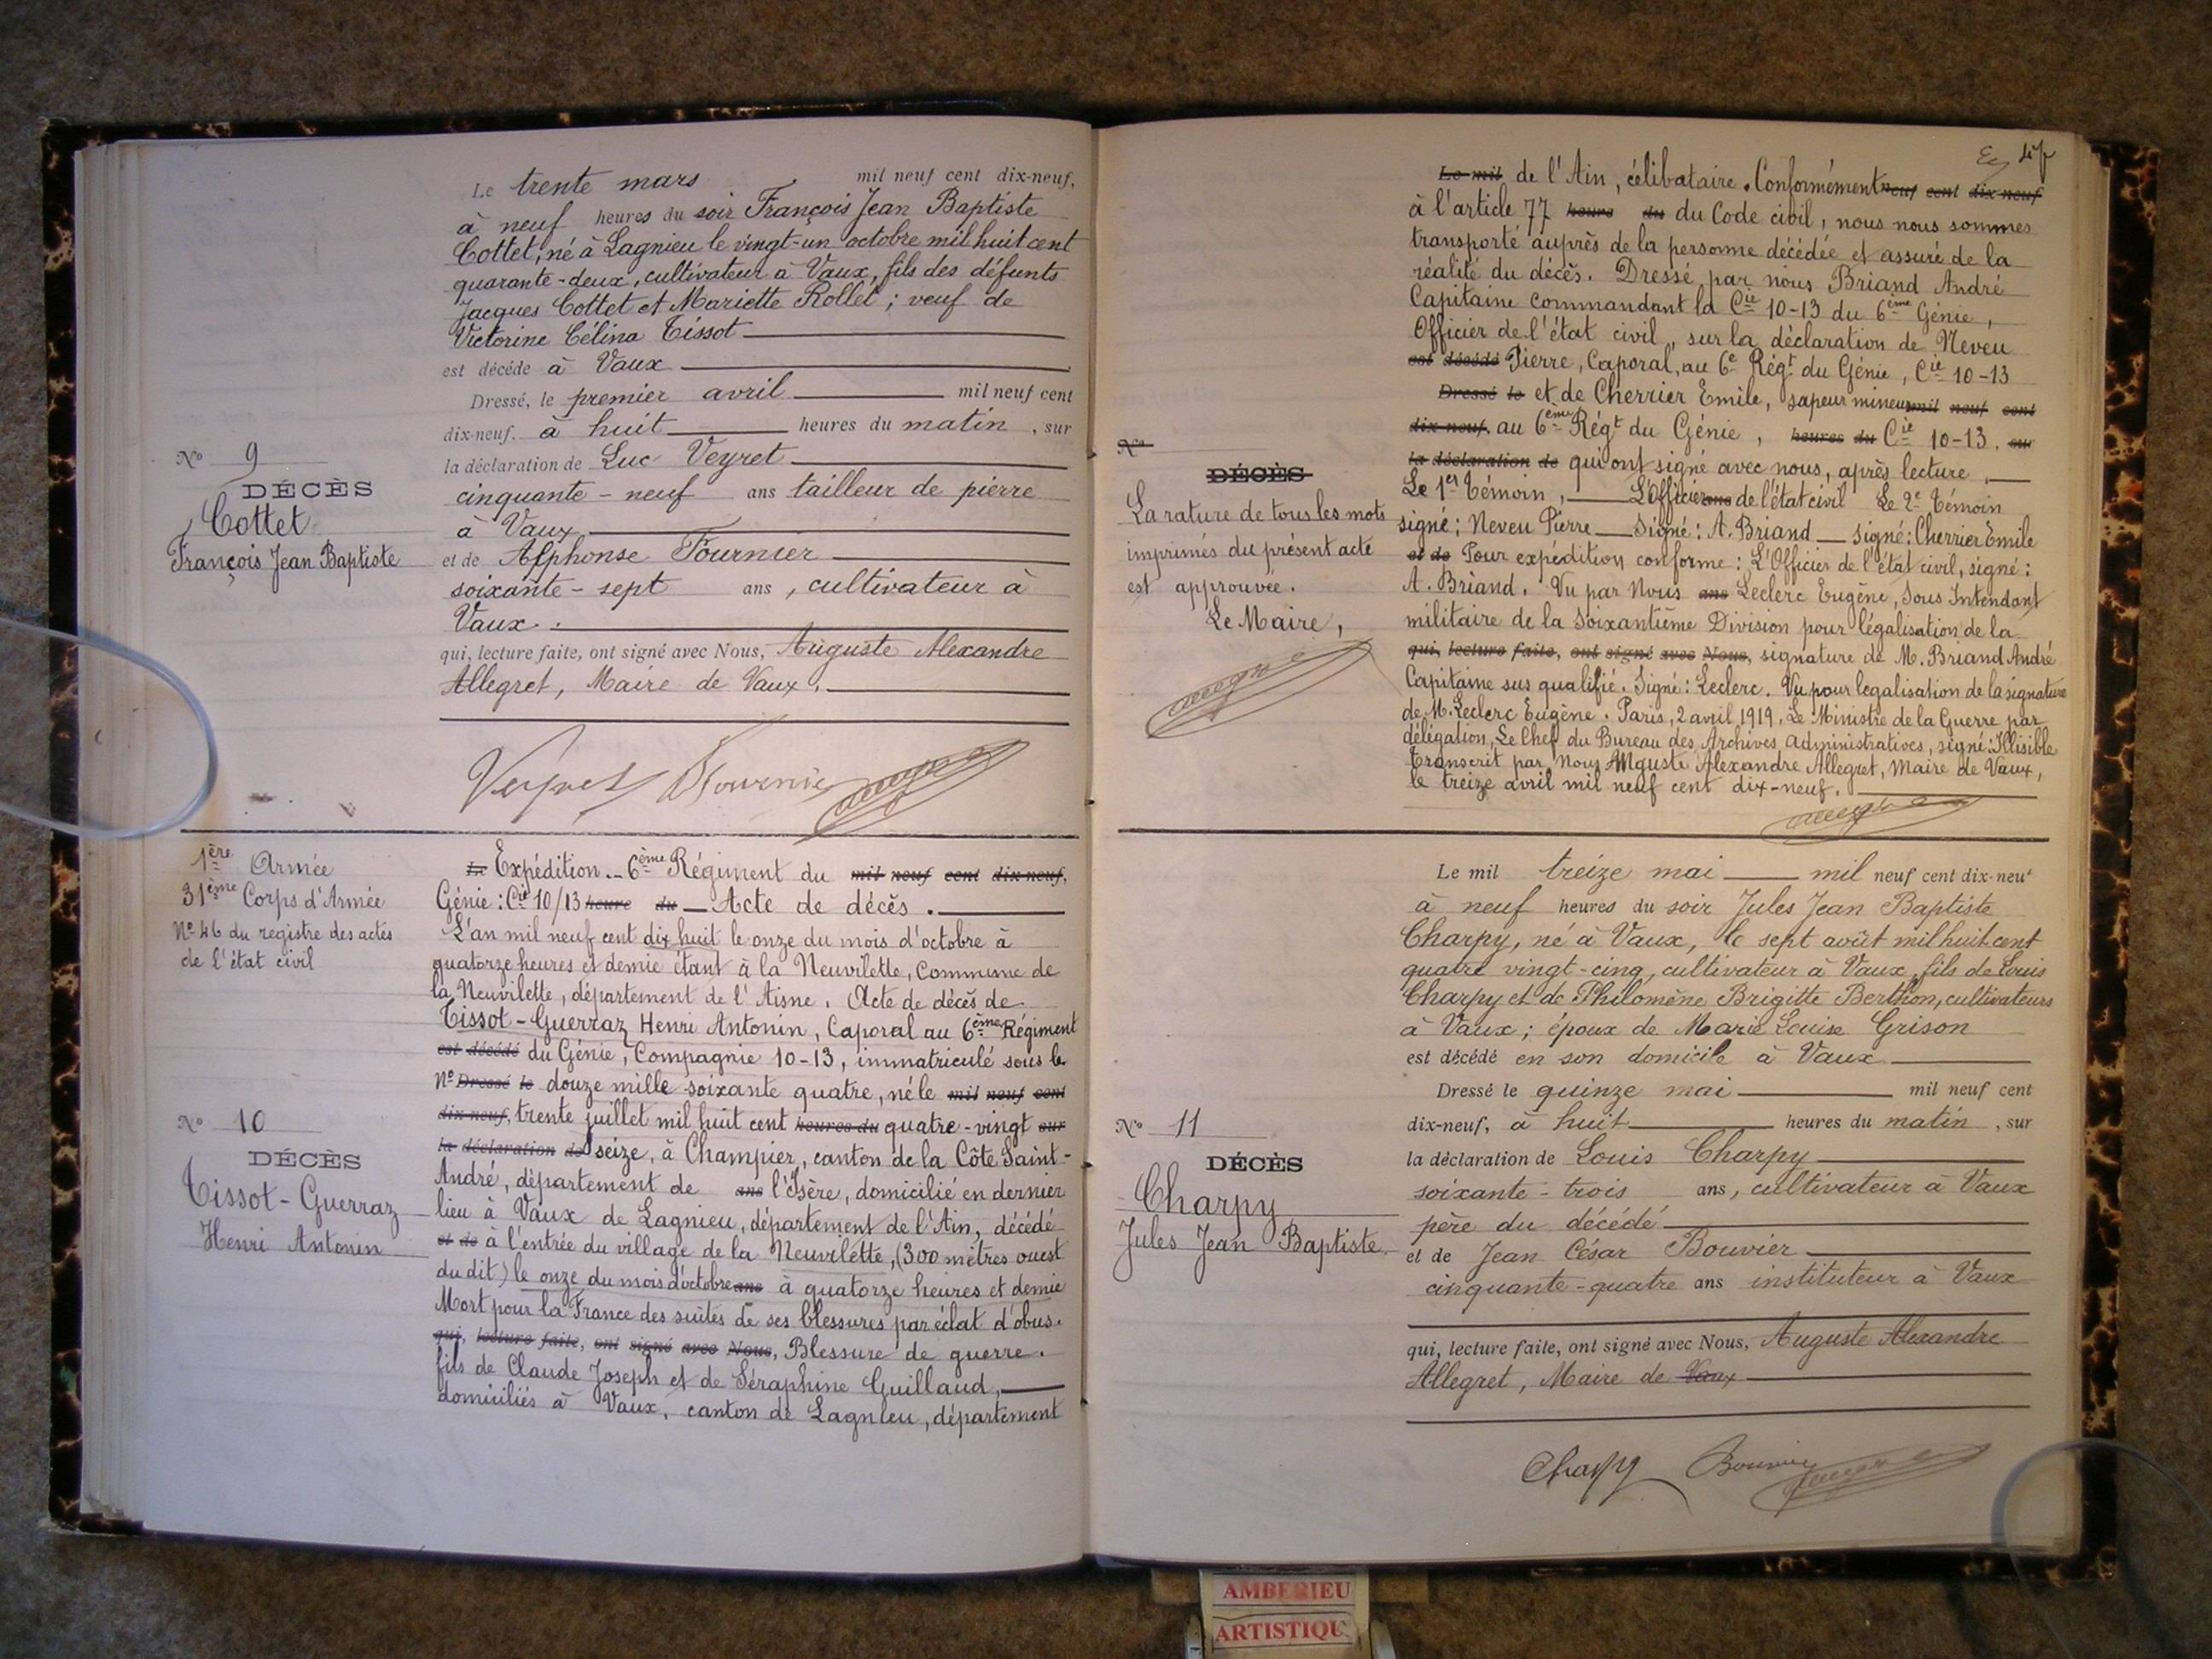 Le trente mars mil neuf cent dix-neuf,
à neuf heures du soir François Jean Baptiste
Cottet, né à Lagnieu le vingt-un octobre mil huit cent
quarante-deux, cultivateur à Vaux, fils des défunts
Jacques Cottet et Mariette Rollet ; veuf de
Victorine Célina Tissot
est décédé à Vaux
Dressé, le premier avril mil neuf cent
dix-neuf. à huit heures du matin, sur
la déclaration de Luc Veyret
cinquante-neuf ans tailleur de pierre
à Vaux
et de Alphonse Fournier
soixante-sept ans, cultivateur à
Vaux.
qui, lecture faite, ont signé avec Nous, Auguste Alexandre
Allegret, Maire de Vaux.
Nº 9
DÉCÈS
Cottet
François Jean Baptiste
Veyret Fournier
1ère Armée
31ème Corps d'Armée
Nº 46 du registre des actes
de l'état civil
Nº 10
DÉCÈS
Tissot-Guerraz
Henri Antonin
Le Expédition.- 6ème Régiment du mil neuf cent dix-neuf,
Génie : Cie 10/13 heure du — Acte de décès.
L'an mil neuf cent dix huit le onze du mois d'octobre à
quatorze heures et demie étant à la Neuvilette, Commune de
la Neuvilette, département de l'Aisne. Acte de décès de
Tissot-Guerraz Henri Antonin, Caporal au 6ème Régiment
est décédé du Génie, Compagnie 10-13, immatriculé sous le
Nº Dressé le douze mille soixante quatre, né le mil neuf cent
dix-neuf, trente juillet mil huit cent heures du quatre-vingt sur
la déclaration de seize, à Champier, canton de la Côte Saint-
André, département de ans l'Isère, domicilié en dernier
lieu à Vaux de Lagnieu, département de l'Ain, décédé
et de à l'entrée du village de la Neuvilette, (300 mètres ouest
du dit) le onze du mois d'octobre ans à quatorze heures et demie
Mort pour la France des suites de ses blessures par éclat d'obus.
qui, lecture faite, ont signé avec Nous, Blessure de guerre.
fils de Claude Joseph et de Séraphine Guillaud,
domiciliés à Vaux, canton de Lagnieu, département
47
Le mil de l'Ain, célibataire. Conformément neuf cent dix-neuf
à l'article 77 heure du du Code civil, nous nous sommes
transporté auprès de la personne décédée et assuré de la
réalité du décès. Dressé par nous Briand André
Capitaine commandant la Cie 10-13 du 6ème Génie,
Officier de l'état civil, sur la déclaration de Neveu
est décédé Pierre, Caporal, au 6e Régt du Génie, Cie 10-13
Dressé le et de Cherrier Emile, sapeur mineur mil neuf cent
dix-neuf. au 6ème Régt du Génie, heures du Cie 10-13. sur
la déclaration de qui ont signé avec nous, après lecture,
Le 1er Témoin, — L'Officier ans de l'état civil Le 2e Témoin
signé : Neveu Pierre — Signé : A. Briand — signé : Cherrier Emile
et de Pour expédition conforme : L'Officier de l'état civil, signé :
A. Briand. Vu par Nous ans Leclerc Eugène, Sous Intendant
militaire de la Soixantième Division pour légalisation de la
qui, lecture faite, ont signé avec Nous, signature de M. Briand André
Capitaine sus qualifié. Signé : Leclerc. Vu pour légalisation de la signature
de M. Leclerc Eugène. Paris, 2 avril 1919, Le Ministre de la Guerre par
délégation, Le Chef du Bureau des Archives Administratives, signé : Illisible
Transcrit par Nous Auguste Alexandre Allegret, Maire de Vaux,
le treize avril mil neuf cent dix-neuf.
Nº
DÉCÈS
La rature de tous les mots
imprimés du présent acte
est approuvée.
Le Maire,
Le mil treize mai mil neuf cent dix-neuf
à neuf heures du soir Jules Jean Baptiste
Charpy, né à Vaux, le sept août mil huit cent
quatre vingt-cinq, cultivateur à Vaux, fils de Louis
Charpy et de Philomène Brigitte Berthon, cultivateurs
à Vaux ; époux de Marie Louise Grison
est décédé en son domicile à Vaux
Dressé le quinze mai mil neuf cent
dix-neuf, à huit heures du matin, sur
la déclaration de Louis Charpy
soixante-trois ans, cultivateur à Vaux
père du décédé
et de Jean César Bouvier
cinquante-quatre ans instituteur à Vaux
qui, lecture faite, ont signé avec Nous, Auguste Alexandre
Allegret, Maire de Vaux
Nº 11
DÉCÈS
Charpy
Jules Jean Baptiste
Charpy Bouvier
AMBERIEU
ARTISTIQU